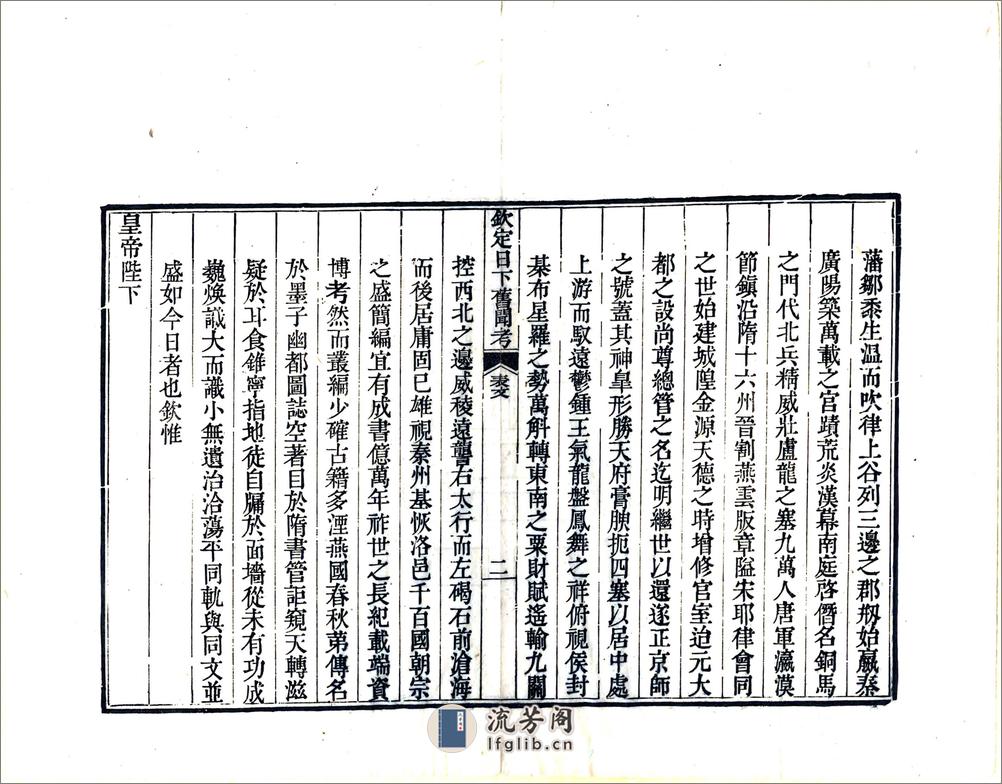 藩鄒黍生温而吹律上谷列三邊之郡剏始嬴秦
廣陽築萬載之宫蹟荒炎漢幕南庭啓僭名銅馬
之門代北兵精威壯盧龍之塞九萬人唐軍瀛漠
節鎮沿隋十六州晉割燕雲版章隘宋耶律會同
之世始建城隍金源天德之時增修官室迨元大
都之設尚尊總管之名迄明繼世以還遂正京師
之號蓋其神皇形勝天府膏腴扼四塞以居中處
上游而馭遠鬱鍾王氣龍盤鳳舞之祥俯視侯封
棊布星羅之勢萬斛轉東南之粟財賦遙輸九關
欽定日下舊聞考
表文
二
控西北之邊威稜遠讋右太行而左碣石前滄海
而後居庸固已雄視秦州基恢洛邑千百國朝宗
之盛簡編宜有成書億萬年祚世之長紀載端資
博考然而叢編少確古籍多湮燕國春秋第傳名
於墨子幽都圖誌空著目於隋書管詎窺天轉滋
疑於耳食錐寧指地徒自牖於面墻從未有功成
巍煥識大而識小無遺治洽蕩平同軌與同文並
盛如今日者也欽惟
皇帝陛下
流芳阁
lfglib.cn